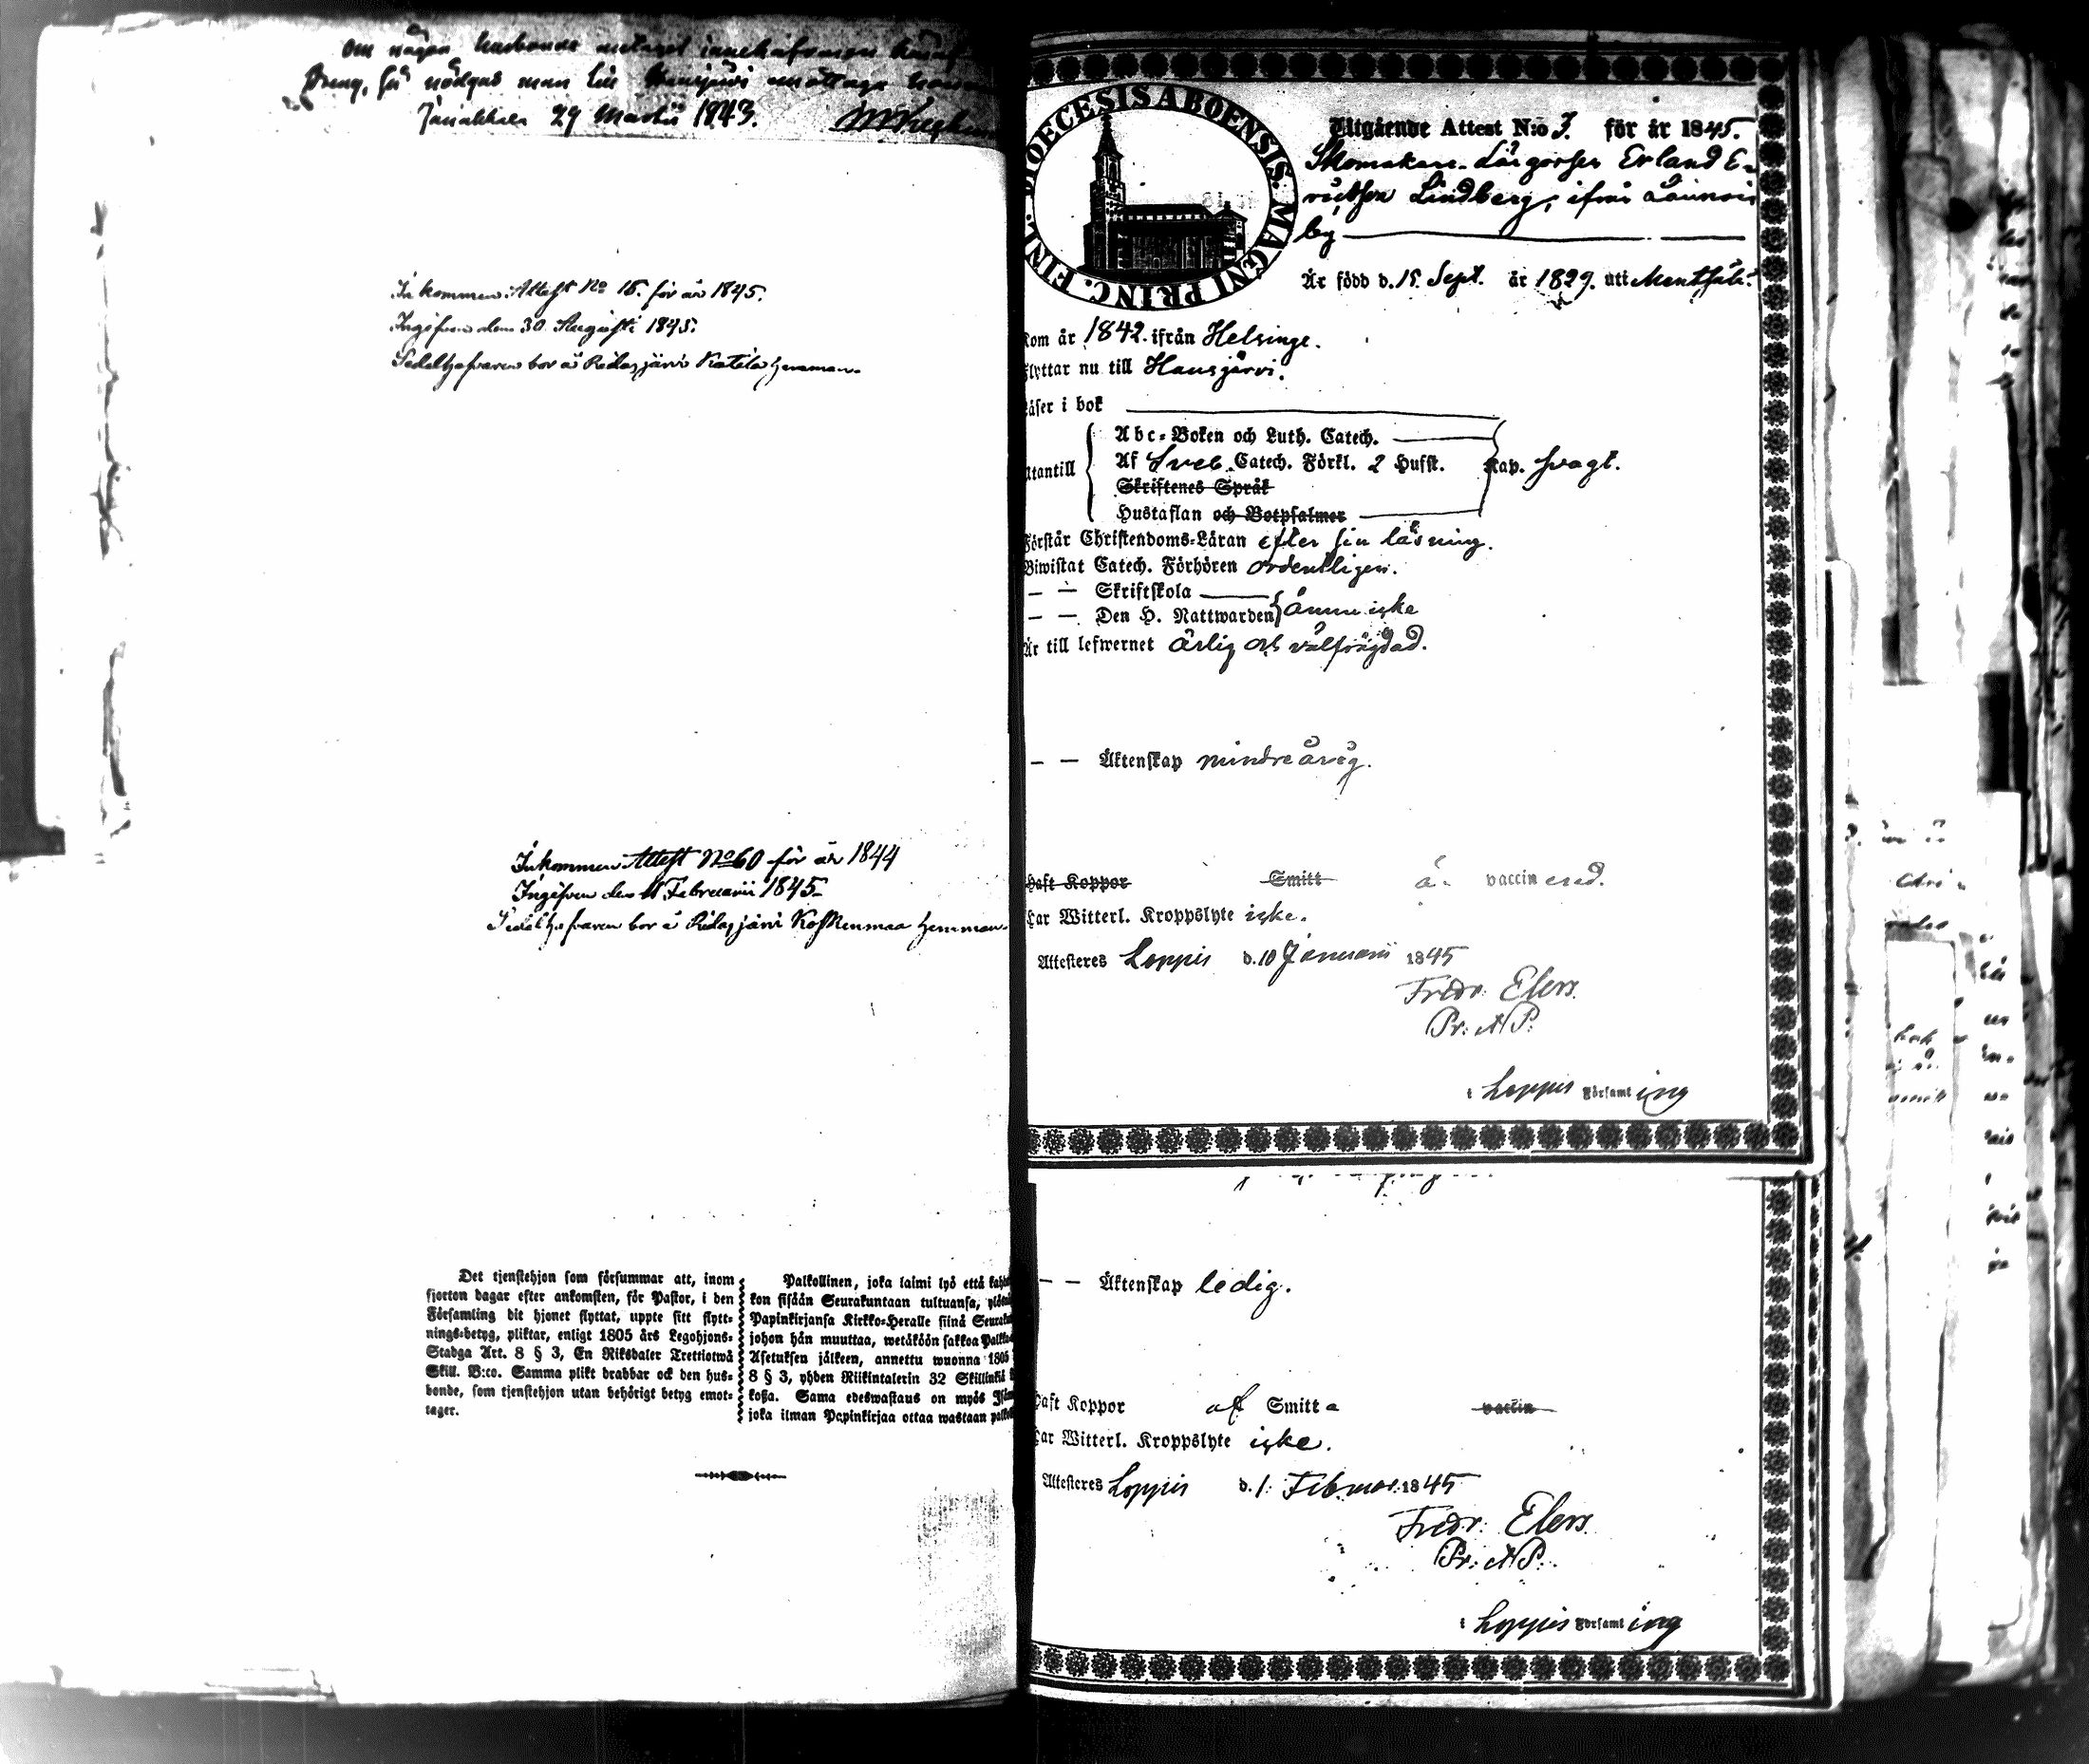 Om någon husbonde antaget innehafvaren
Dreng, så nödgas man till Hausjärvi mottaga
Janakkala 29 Martii 1843.
Inkommen Attest No 15. för år 1845.
Ingifven den 30 Augusti 1845.
Sedelhafvaren bor å Ridasjärvi Katila hemman.
Inkommen Attest No 60 för år 1844
Ingifven den 11 Februarii 1845.
Sedelhafvaren bor å Ridasjärvi Koskenmaa hemman.
Det tjenstehjon som försummar att, inom
fjorton dagar efter ankomsten, för Pastor, i den
Församling dit hjonet flyttat, uppte sitt flytt-
nings-betyg, pliktar, enligt 1805 års Legohjons-
Stadga Art. 8 § 3, En Riksdaler Trettiotwå
Skill. B:co. Samma plikt drabbar ock den hus-
bonde, som tjenstehjon utan behörigt betyg emot-
tager.
Palkollinen, joka laimi lyö että
kon sisään Seurakuntaan tultuansa,
Papinkirjansa Kirkko-Heralle siinä
johon hän muuttaa, wetäköön sakkoa
Asetuksen jälkeen, annettu wuonna 1805
8 § 3, yhden Riikintalerin 32 Skillinkiä
koßa. Sama edeswastaus on myös
joka ilman Papinkirjaa ottaa wastaan
DIOECESIS ABOENSIS. MAGNI PRINC. FINL.
Utgående Attest N:o 3. för år 1845.
Skomakare-Lärgossen Erland E-
ricsson Lindberg, ifrån
by
Är född d. 15 Sept. år 1829. uti Mentsälä.
Kom år 1842. ifrån Helsinge.
Flyttar nu till Hausjärvi.
Läser i bok
Utantill
Abc-Boken och Luth. Catech.
Af Sveb. Catech. Förkl. 2 Hufst. Kap. svagt.
Skriftenes Språk
Hustaflan och Botpsalmer
Förstår Christendoms-Läran efter sin läsning.
Biwistat Catech. Förhören ordentligen.
— — Skriftskola
— — Den H. Nattwarden ännu icke
Är till lefwernet ärlig och välfrägdad.
— — Äktenskap mindreårig.
Haft Koppor Smitt är vaccinerad.
Har Witterl. Kroppslyte icke.
Attesteres Loppis d. 10 Januarii 1845
Fredr. Elers.
Pr: et P:
i Loppis Församling
— — Äktenskap ledig.
Haft Koppor af Smitta vaccin
Har Witterl. Kroppslyte icke.
Attesteres Loppis d. 1. Februar. 1845
Fredr. Elers.
Pr: et P:
i Loppis Församling